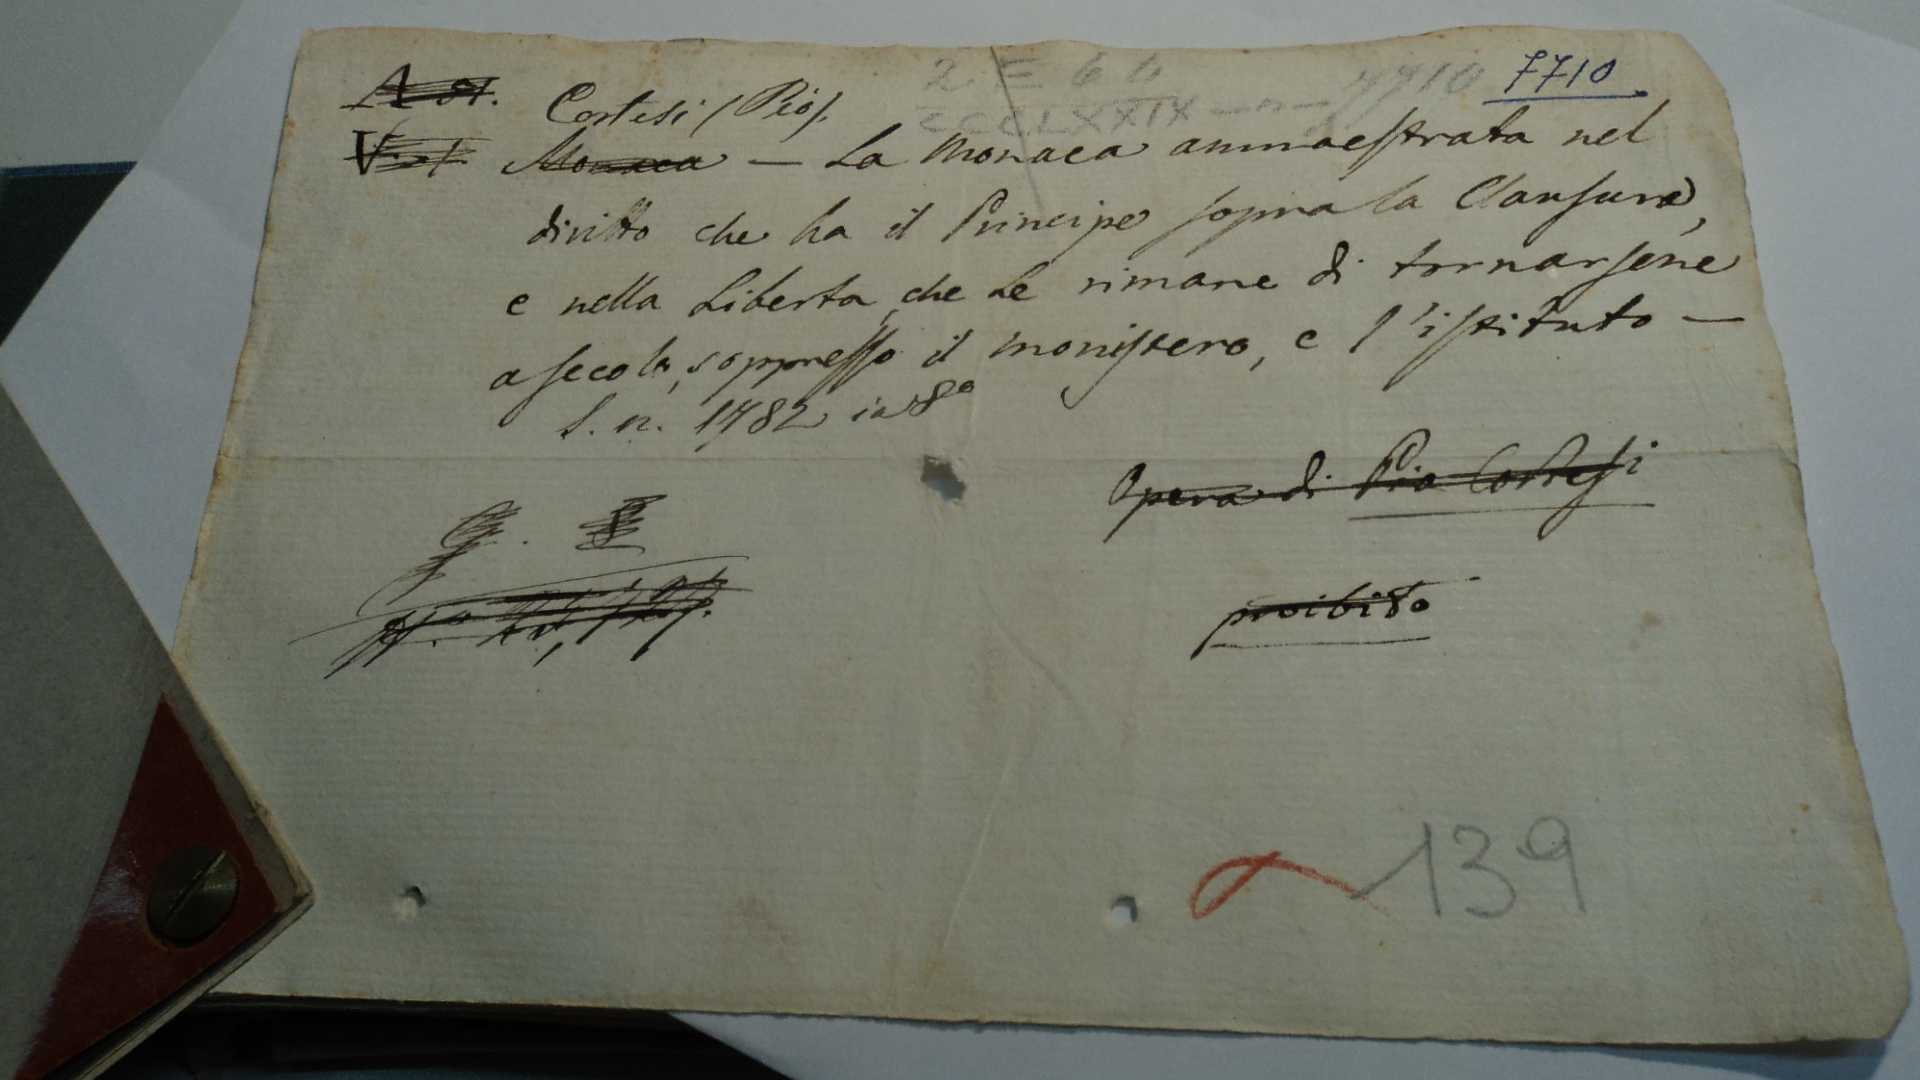 7710
Cortesi (Pio).
2 E 66
CCCLXXIX
Monaca — La Monaca ammaestrata nel
diritto che ha il Principe sopra la Clausura,
e nella Libertà, che Le rimane di tornarsene
a secolo, soppresso il monistero, e l'istituto —
S. n. 1782 in 8º
Opera di Pio Cortesi
proibito
139